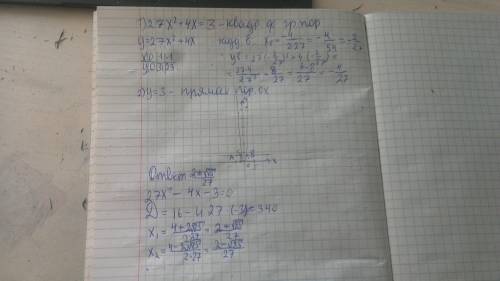 1) 27x² + 4x = 3 - квадр. ф гр. пар
y = 27x² + 4x коорд. в. x₀ = -4/2·27 = -4/54 = -2/27
x 0 -1 1
y 0 23 yв = 27·(-2/27)² + 4·(-2/27) =
= 27·4/27² - 8/27 = 4-8/27 = -4/27
2) y = 3 - прямая ох
Ответ 2±√85/27
27x² - 4x - 3 = 0
D = 16 - 4·27·(-3) = 340
x₁ = 4+2√85/2·27 = 2+√85/27
x₂ = 4-2√85/2·27 = 2-√85/27